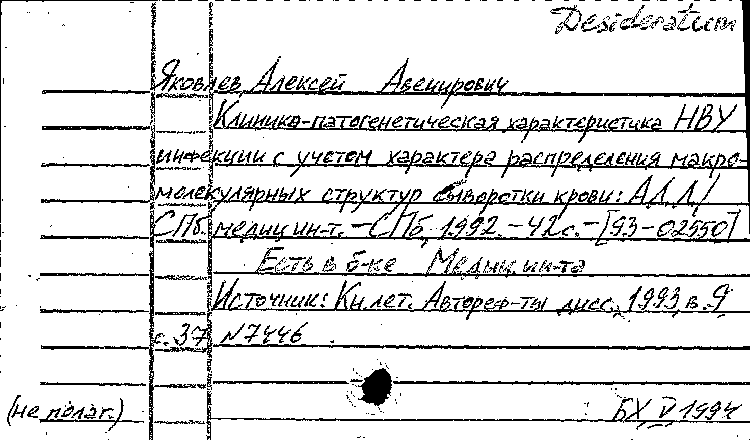 Desideratum
Яковлев, Алексей Авенирович
Клинико-патогенетическая характеристика HBV
инфекции с учетом характера распределения макро-
молекулярных структур сыворотки крови: АДД /
СПб. медиц. ин-т. – СПб, 1992. – 42с. – [93-02550]
Есть в б-ке Медиц. ин-та
Источник: Кн. лет. Автореф-ты дисс., 1993, в. 9
с. 37 N7446
(не полаг.) БХ, V, 1994